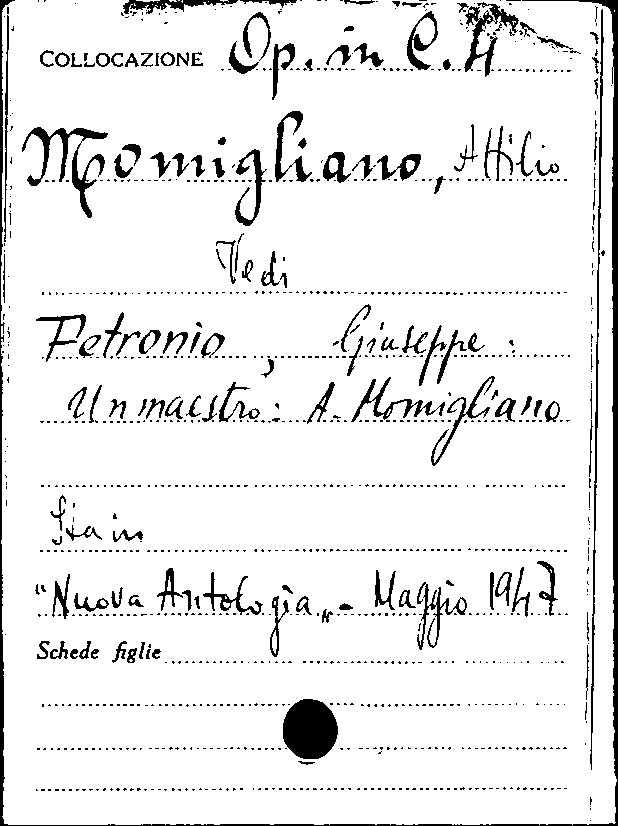 COLLOCAZIONE Op. in C. 4
Momigliano, Attilio
Vedi
Petronio, Giuseppe:
Un maestro: A. Momigliano
Sta in
"Nuova Antologia" - Maggio 1947
Schede figlie